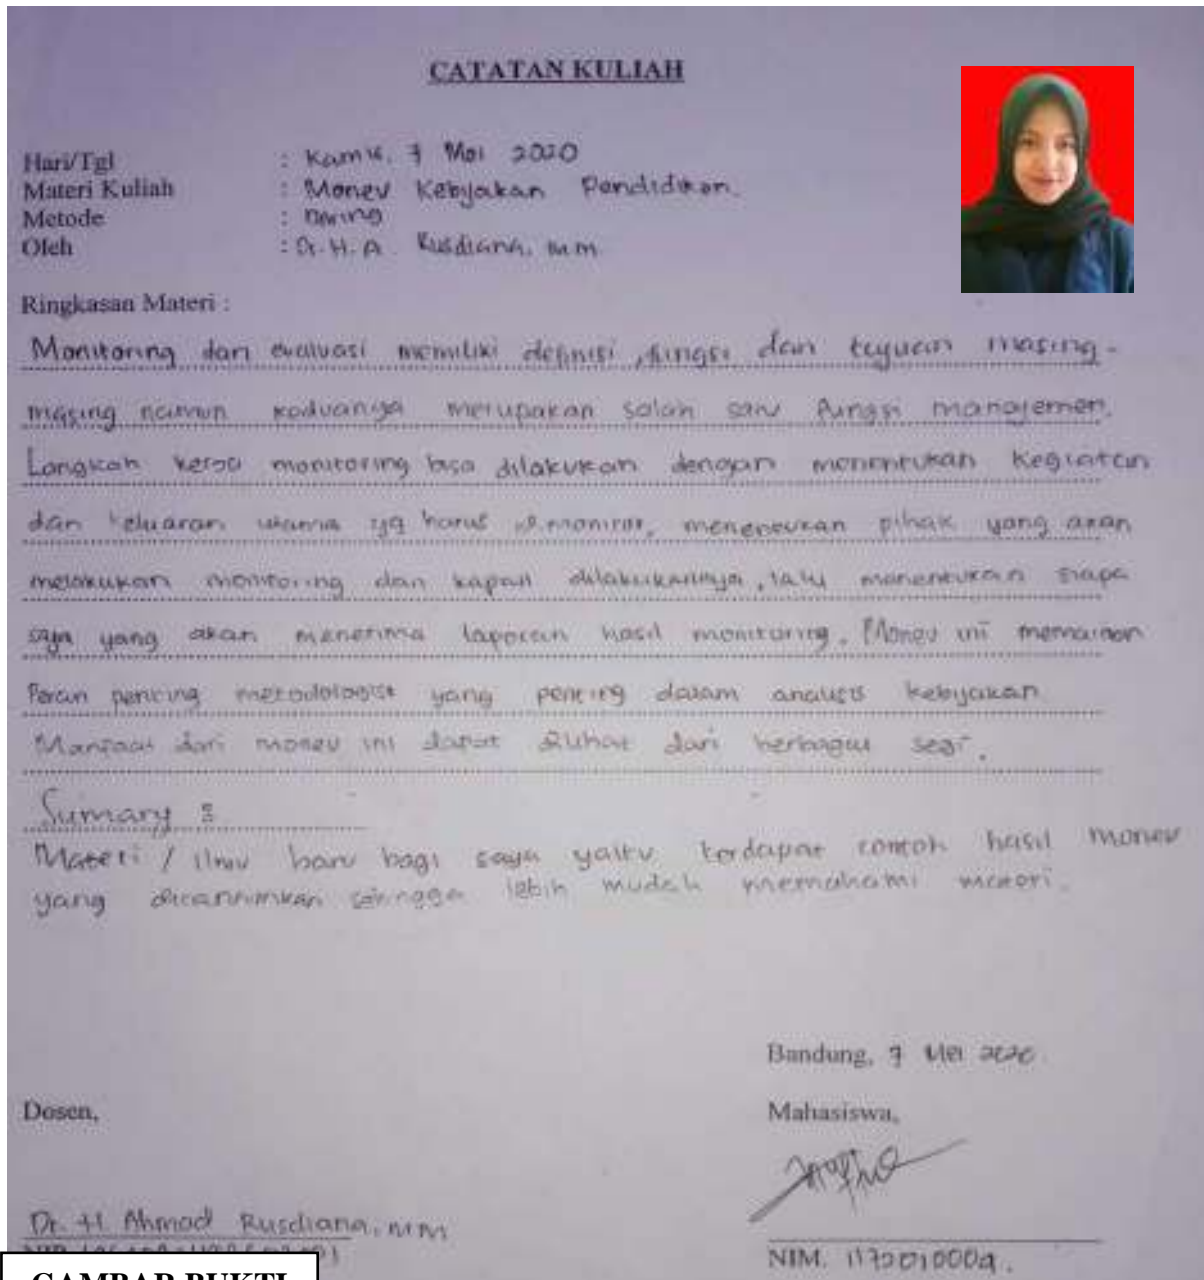 CATATAN KULIAH
Hari/Tgl : Kamis, 7 Mei 2020
Materi Kuliah : Monev Kebijakan Pendidikan.
Metode : Daring
Oleh : Dr. H. A. Rusdiana, M.M.
Ringkasan Materi :
Monitoring dan evaluasi memiliki definisi, fungsi dan tujuan masing-
masing namun keduanya merupakan salah satu fungsi manajemen.
Langkah kerja monitoring bisa dilakukan dengan menentukan kegiatan
dan keluaran utama yg harus dimonitor, menentukan pihak yang akan
melakukan monitoring dan kapan dilakukannya, lalu menentukan siapa
saja yang akan menerima laporan hasil monitoring. Monev ini memainkan
Peran penting metodologist yang penting dalam analisis kebijakan
Manfaat dari monev ini dapat dilihat dari berbagai segi.
Sumary :
Materi / ilmu baru bagi saya yaitu terdapat contoh hasil monev
yang dicantumkan sehingga lebih mudah memahami materi.
Bandung, 7 Mei 2020
Dosen, Mahasiswa,
Dr. H. Ahmad Rusdiana, MM
NIP
NIM. 1172010009.
GAMBAR BUKTI